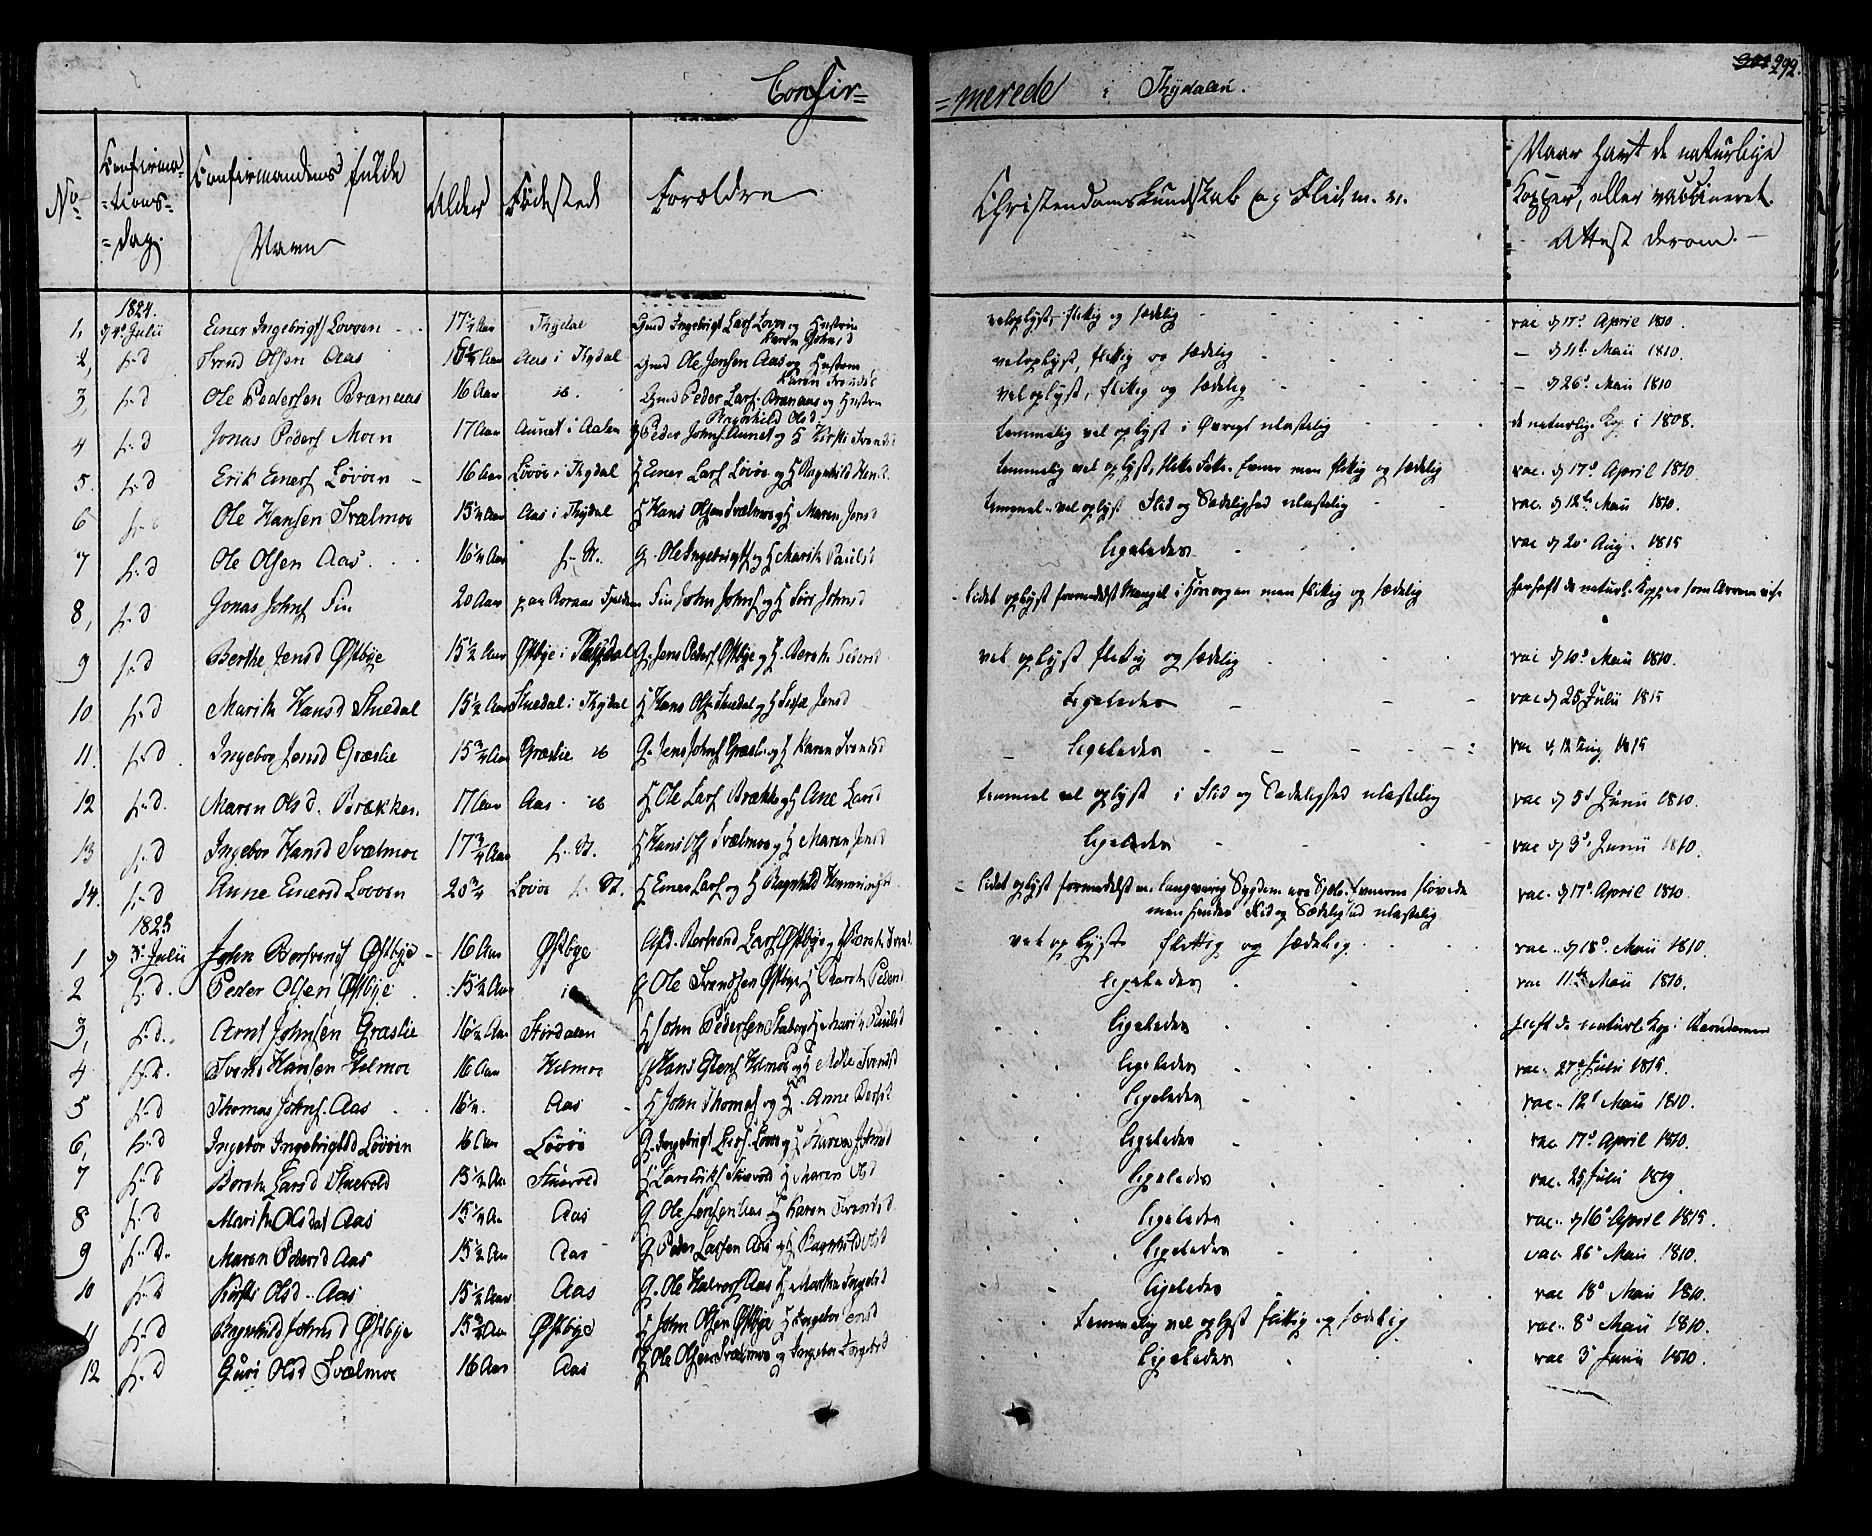 Confir=
=merede i Thydalen.
292.
No
Confirma-
=tions-
=dag.
Confirmandens fulde
Navn
Alder
Fødested
Forældre
Christendomskundskab og Flid, m. v.
Naar havt de naturlige
Kopper, eller vaccineret.
Attest derom.
1824.
1, d 4 Julii Einer Ingebrigts Lovoen 17 1/4 Aar Thydal Gmd Ingebrigt Lars Lovn og Hustrue Karen Johnsd veloplyst, flittig og sædelig vac d 17 April 1810.
2, s.d Svend Olsen Aas Aar Aas i Thydal Gmd Ole Jensen Aas og Hustrue Karen Svends veloplyst, flittig og sædelig - d 11 Maii 1810.
3, s.d Ole Pedersen Brænaas 16 Aar ib. Gmd Peder Lars. Brænaas og Hustrue Ragnhild Olsd veloplyst, flittig og sædelig - d 26 Maii 1810
4 s.d Jonas Peders Moen 17 Aar Aunet i Aalen Peder Johns Aunet og H Kirsti Svends temmelig vel oplyst i Øvrigt ulastelig de naturlig. Kop. i 1808.
5. s.d Erik Einers Lövöen 16 Aar Lövöe i Thydal H Einer Lars Lövöe og H Ragnhild temmelig vel oplyst, men flittig og sædelig vac. d 17 April 1810
6 s.d Ole Hansen Svælmoe 15 1/4 Aar Aas i Thydal H Hans Olsen Svælmoe og H Maren Jensd temmel. vel oplyst Flid og Sædelighed ulastelig vac. d 12te Maii 1810.
7 s.d Ole Olsen Aas 16 1/4 Aar s. St. G. Ole Ingebrigts og H Marith Paulsd ligeledes vac d 20 Aug. 1815
8, s.d Jonas Johns Fin 20 Aar paa Röraas Fjeldene Fin John Johns og H Siri Johnsd lidet oplyst formedelst Mangel i Höreorgan men flittig og sædelig har haft de naturl. Kopper som Arrene vise
9 s.d Berthe Jensd Østbye 15 1/2 Aar Østbye i Thydal G. Jens Peders Østbye og H. Berethe Pedersd vel oplyst flittig og sædelig vac d 10 Maii 1810.
10 s.d Marith Hansd Stuedal 15 1/2 Aar Stuedal i Thydal H Hans Ols Stuedal og H Jensd ligeledes vac d 25 Julii 1815
11. s.d. Ingebor Jensd Græslie 15 3/4 Aar Græslie ib G. Jens Johns Græsl. og H Karen Svendsd ligeledes vac d 12 Aug 1815
12 s.d. Maren Olsd. Brækken 17 Aar Aas ib H Ole Lars Brække og H Ane Larsd temmel vel oplyst i Flid og Sædelighed ulastelig vac d 5 Junii 1810.
13 s.d Ingebor Hansd Svælmoe 17 3/4 Aar s. St. H Hans Ols Svælmoe og H Maren Jensd ligeledes vac d 3 Junii 1810.
14. s.d Anne Einersd Lovoen 20 3/4 Lovoe s. St. H Einer Lars og H Ragnhild Hemmingsd lidet oplyst formedelst en langvarig Sygdom Sjels-Evnerne slövede
men hendes Flid og Sædelighed ulastelig vac. d 17 April 1810
1825
1 d 3 Julii John Bersvends Østbye 16 Aar Østbye Afd. Bersvend Lars Østbye og H Berethe Svends. vel oplyst flittig og sædelig vac. d 18 Maii 1810.
2 s.d. Peder Olsen Østbye 15 1/2 Aar G Ole Svendsen Østbye H Berethe Pedersd ligeledes vac 11te Maii 1810.
3, s.d. Arnt Johnsen Græslie 16 1/2 Aar Stördalen H John Pedersen H Marith Paulsd ligeledes haft de naturl. Kop. i Barndommen
4 s.d. Svend Hansen Hilmoe 16 Aar Hilmoe Hans Estens Hilmoe og H Svendsd ligeledes vac. 27 Julii 1815.
5 s.d Thomas Johns. Aas 16 1/2. Aas H John Thomas og H. Anne ligeledes vac. 12 Maii 1810.
6, s.d Ingebor Ingebrigtsd Lövöen 16 Aar Lövöe G. Ingebrigt Lars. Lovn og H Karen Johnsd ligeledes vac 17 April 1810.
7 s.d Berethe Larsd Stuevold 15 1/2 Aar Stuevold H Lars Stuevold H Maren Olsd ligeledes vac. 25 Julii 1819.
8 s.d Marith Olsdat Aas 15 1/4 Aar Aas G Ole Jensen Aas H Karen Svendsd ligeledes vac. d 16 April 1815.
9 s.d. Maren Pedersd Aas 15 1/2 Aar Aas G Peder Larsen Aas og H Ragnhild Olsd ligeledes vac. 26 Maii 1810.
10 s.d Kirsti Olsd. Aas 15 1/2 Aar Aas G. Ole Halvors Aas H Marthe Ingebsd ligeledes vac 18 Maii 1810.
11 s.d Ragnhild Johnsd Østbye 15 3/4 Aar Østbye H John Olsen Østbye H Ingebor Jensd temmelig vel oplyst flittig og sædelig vac. 8 Maii 1810.
12 s.d Guri Olsd Svælmoe 16 Aar Aas H Ole Olsen Svælmoe og Ingebor ligeledes vac 3 Junii 1810.